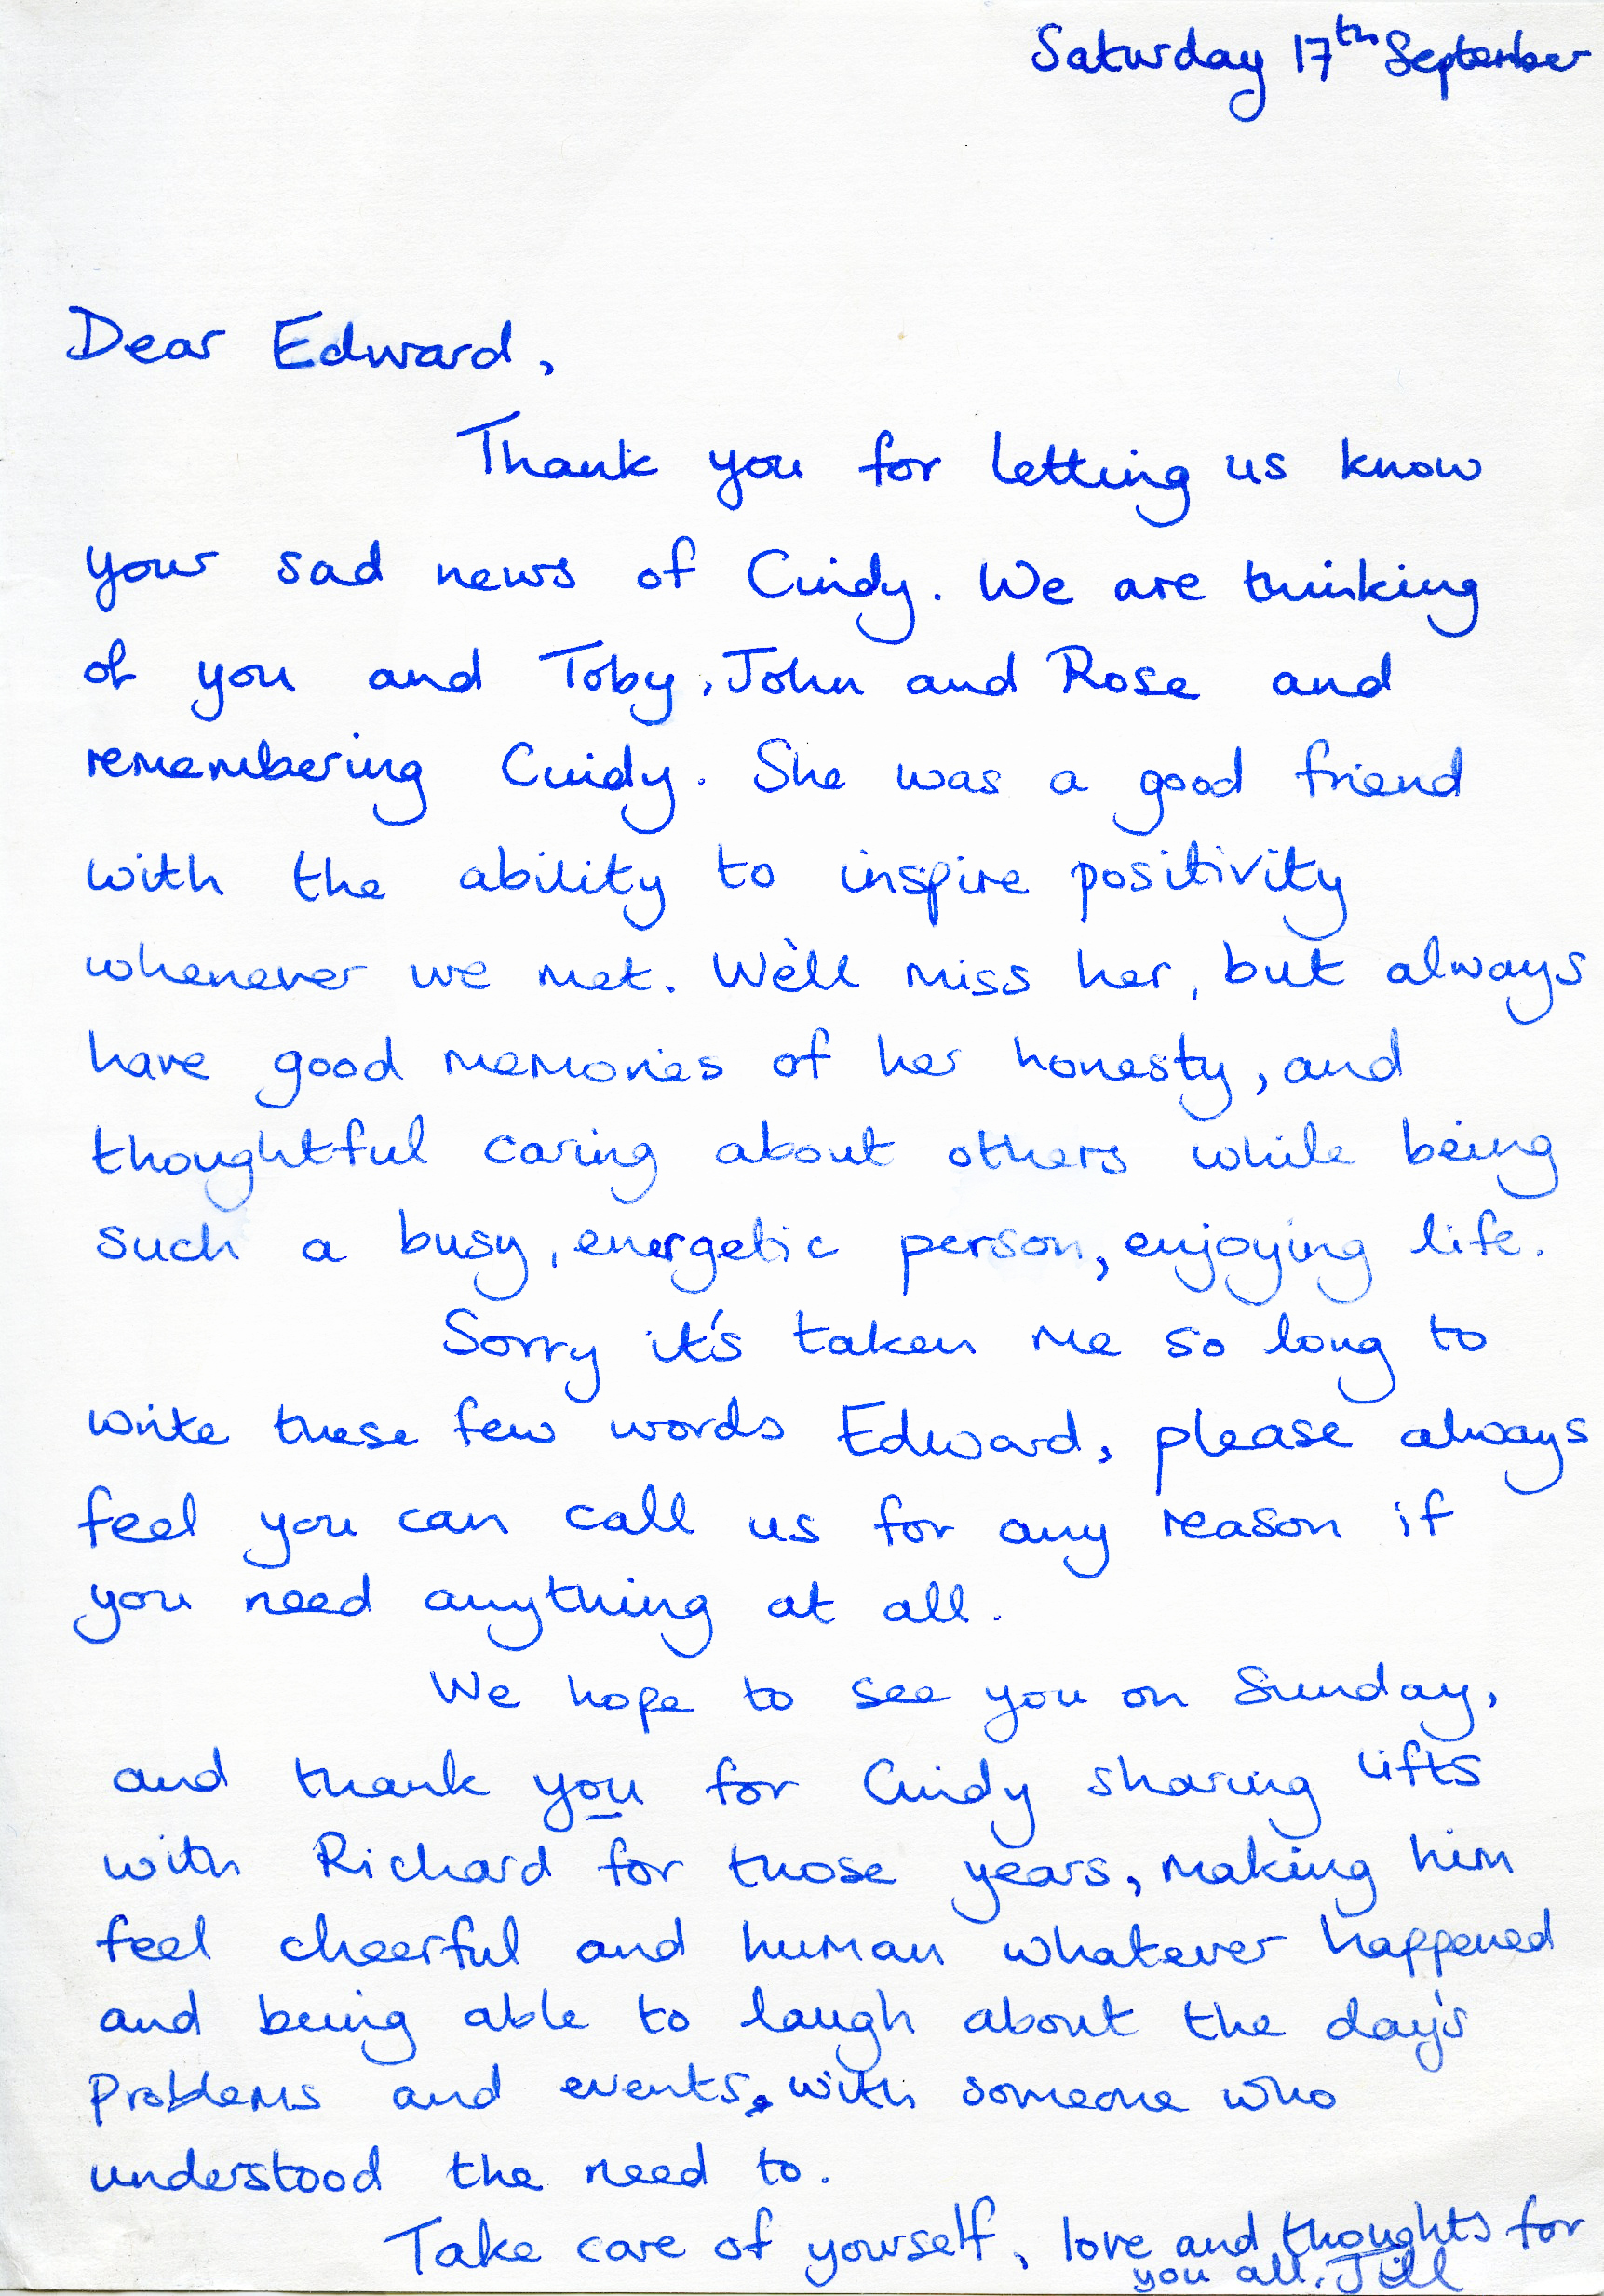 Saturday 17th September
Dear Edward,
Thank you for letting us know
your sad news of Cindy. We are thinking
of you and Toby, John and Rose and
remembering Cindy. She was a good friend
with the ability to inspire positivity
whenever we met. We'll miss her, but always
have good memories of her honesty, and
thoughtful caring about others while being
such a busy, energetic person, enjoying life.
Sorry it's taken me so long to
write these few words Edward, please always
feel you can call us for any reason if
you need anything at all.
We hope to see you on Sunday,
and thank you for Cindy sharing lifts
with Richard for those years, making him
feel cheerful and human whatever happened
and being able to laugh about the day's
problems and events, with someone who
understood the need to.
Take care of yourself, love and thoughts for
you all. Jill